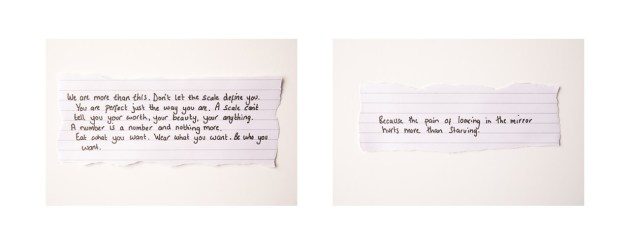 We are more than this. Don't let the scale define you.
You are perfect just the way you are. A scale can't
tell you your worth, your beauty, your anything.
A number is a number and nothing more.
Eat what you want. Wear what you want. & who you
want.
Because the pain of looking in the mirror
hurts more than starving.